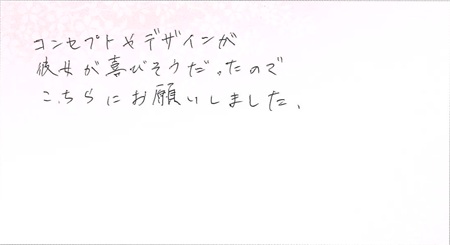 コンセプトやデザインが
彼女が喜びそうだったので
こちらにお願いしました。